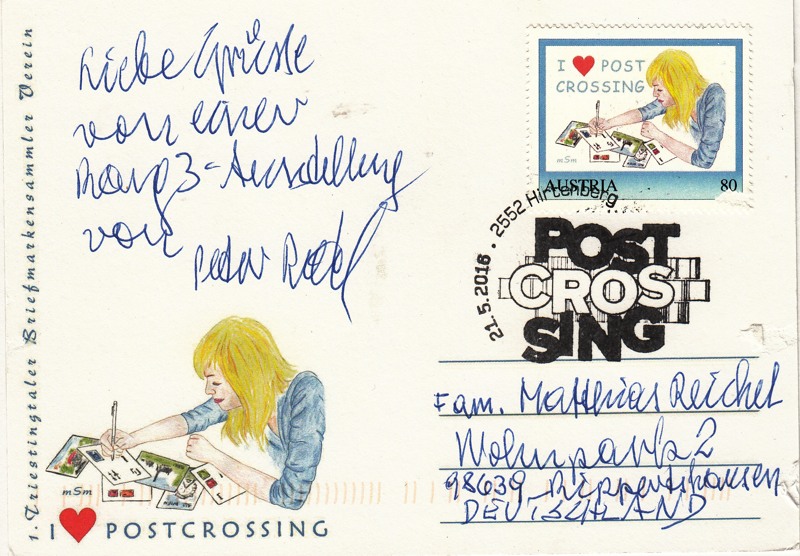 1. Triestingtaler Briefmarkensammler Verein
Liebe Grüsse
von einer
Rang 3-Ausstellung
von
Peter
I ♥ POST
CROSSING
mSm
AUSTRIA 80
21.5.2016 • 2552 Hirtenberg
POST
CROS
SING
Fam. Matthias Reichel
Wohnpark 2
98639 Rippershausen
DEUTSCHLAND
mSm
I ♥ POSTCROSSING